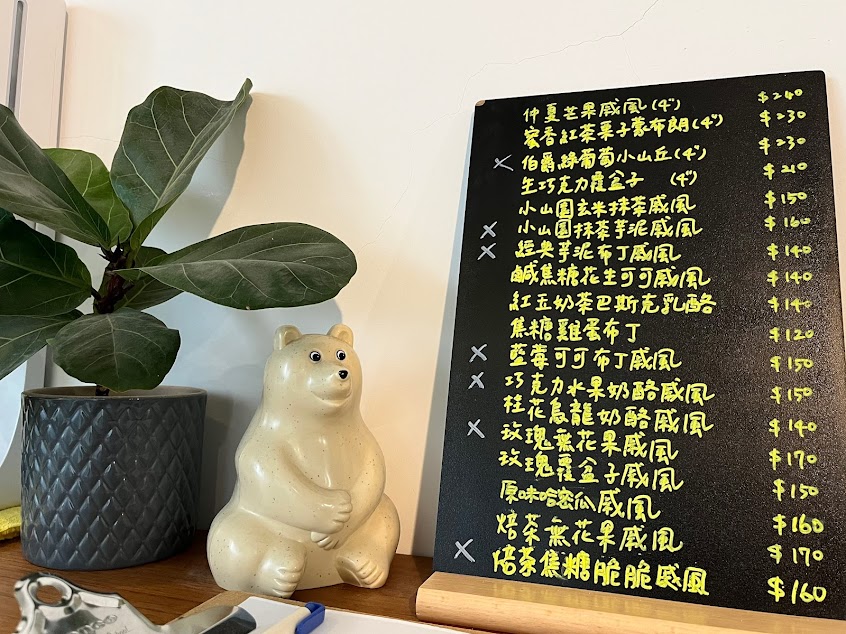 仲夏芒果戚風(4") $240
蜜香紅茶栗子蒙布朗(4") $230
X 伯爵綠葡萄小山丘(4") $230
生巧克力覆盆子 (4") $210
小山園玄米抹茶戚風 $150
X 小山園抹茶芋泥戚風 $160
X 經典芋泥布丁戚風 $140
鹹焦糖花生可可戚風 $140
紅豆奶茶巴斯克乳酪 $140
焦糖雞蛋布丁 $120
X 藍莓可可布丁戚風 $150
X 巧克力水果奶酪戚風 $150
桂花烏龍奶酪戚風 $140
X 玫瑰無花果戚風 $170
玫瑰覆盆子戚風 $150
原味哈密瓜戚風 $160
焙茶無花果戚風 $170
X 焙茶焦糖脆脆戚風 $160